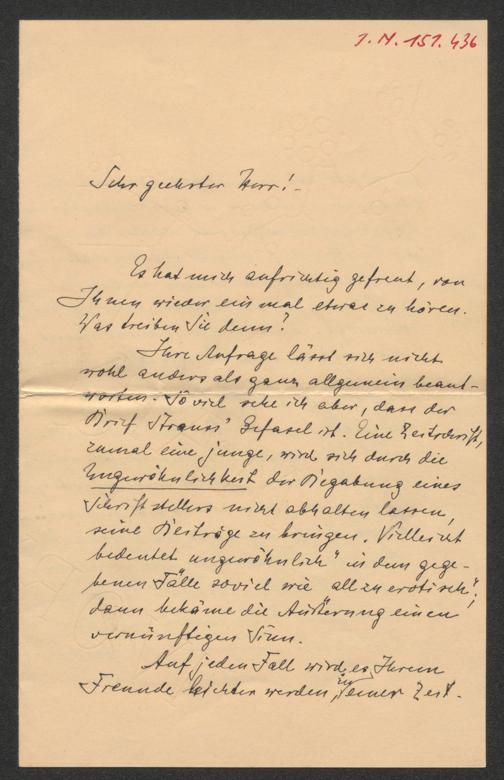 I.N. 151.436
Sehr geehrter Herr! -
Es hat mich aufrichtig gefreut, von
Ihnen wieder einmal etwas zu hören.
Was treiben Sie denn?
Ihre Anfrage lässt sich nicht
wohl anders als ganz allgemein beant-
worten. Soviel sehe ich aber, dass der
Brief Strauss' Gefasel ist. Eine Zeitschrift,
zumal eine junge, wird sich durch die
Ungewöhnlichkeit der Begabung eines
Schriftstellers nicht abhalten lassen,
seine Beiträge zu bringen. Vielleicht
bedeutet „ungewöhnlich" in dem gege-
benen Fälle soviel wie „allzu erotisch";
dann bekäme die Äußerung einen
vernünftigen Sinn.
Auf jeden Fall wird es Ihrem
Freunde leichter werden, zu einer Zeit-